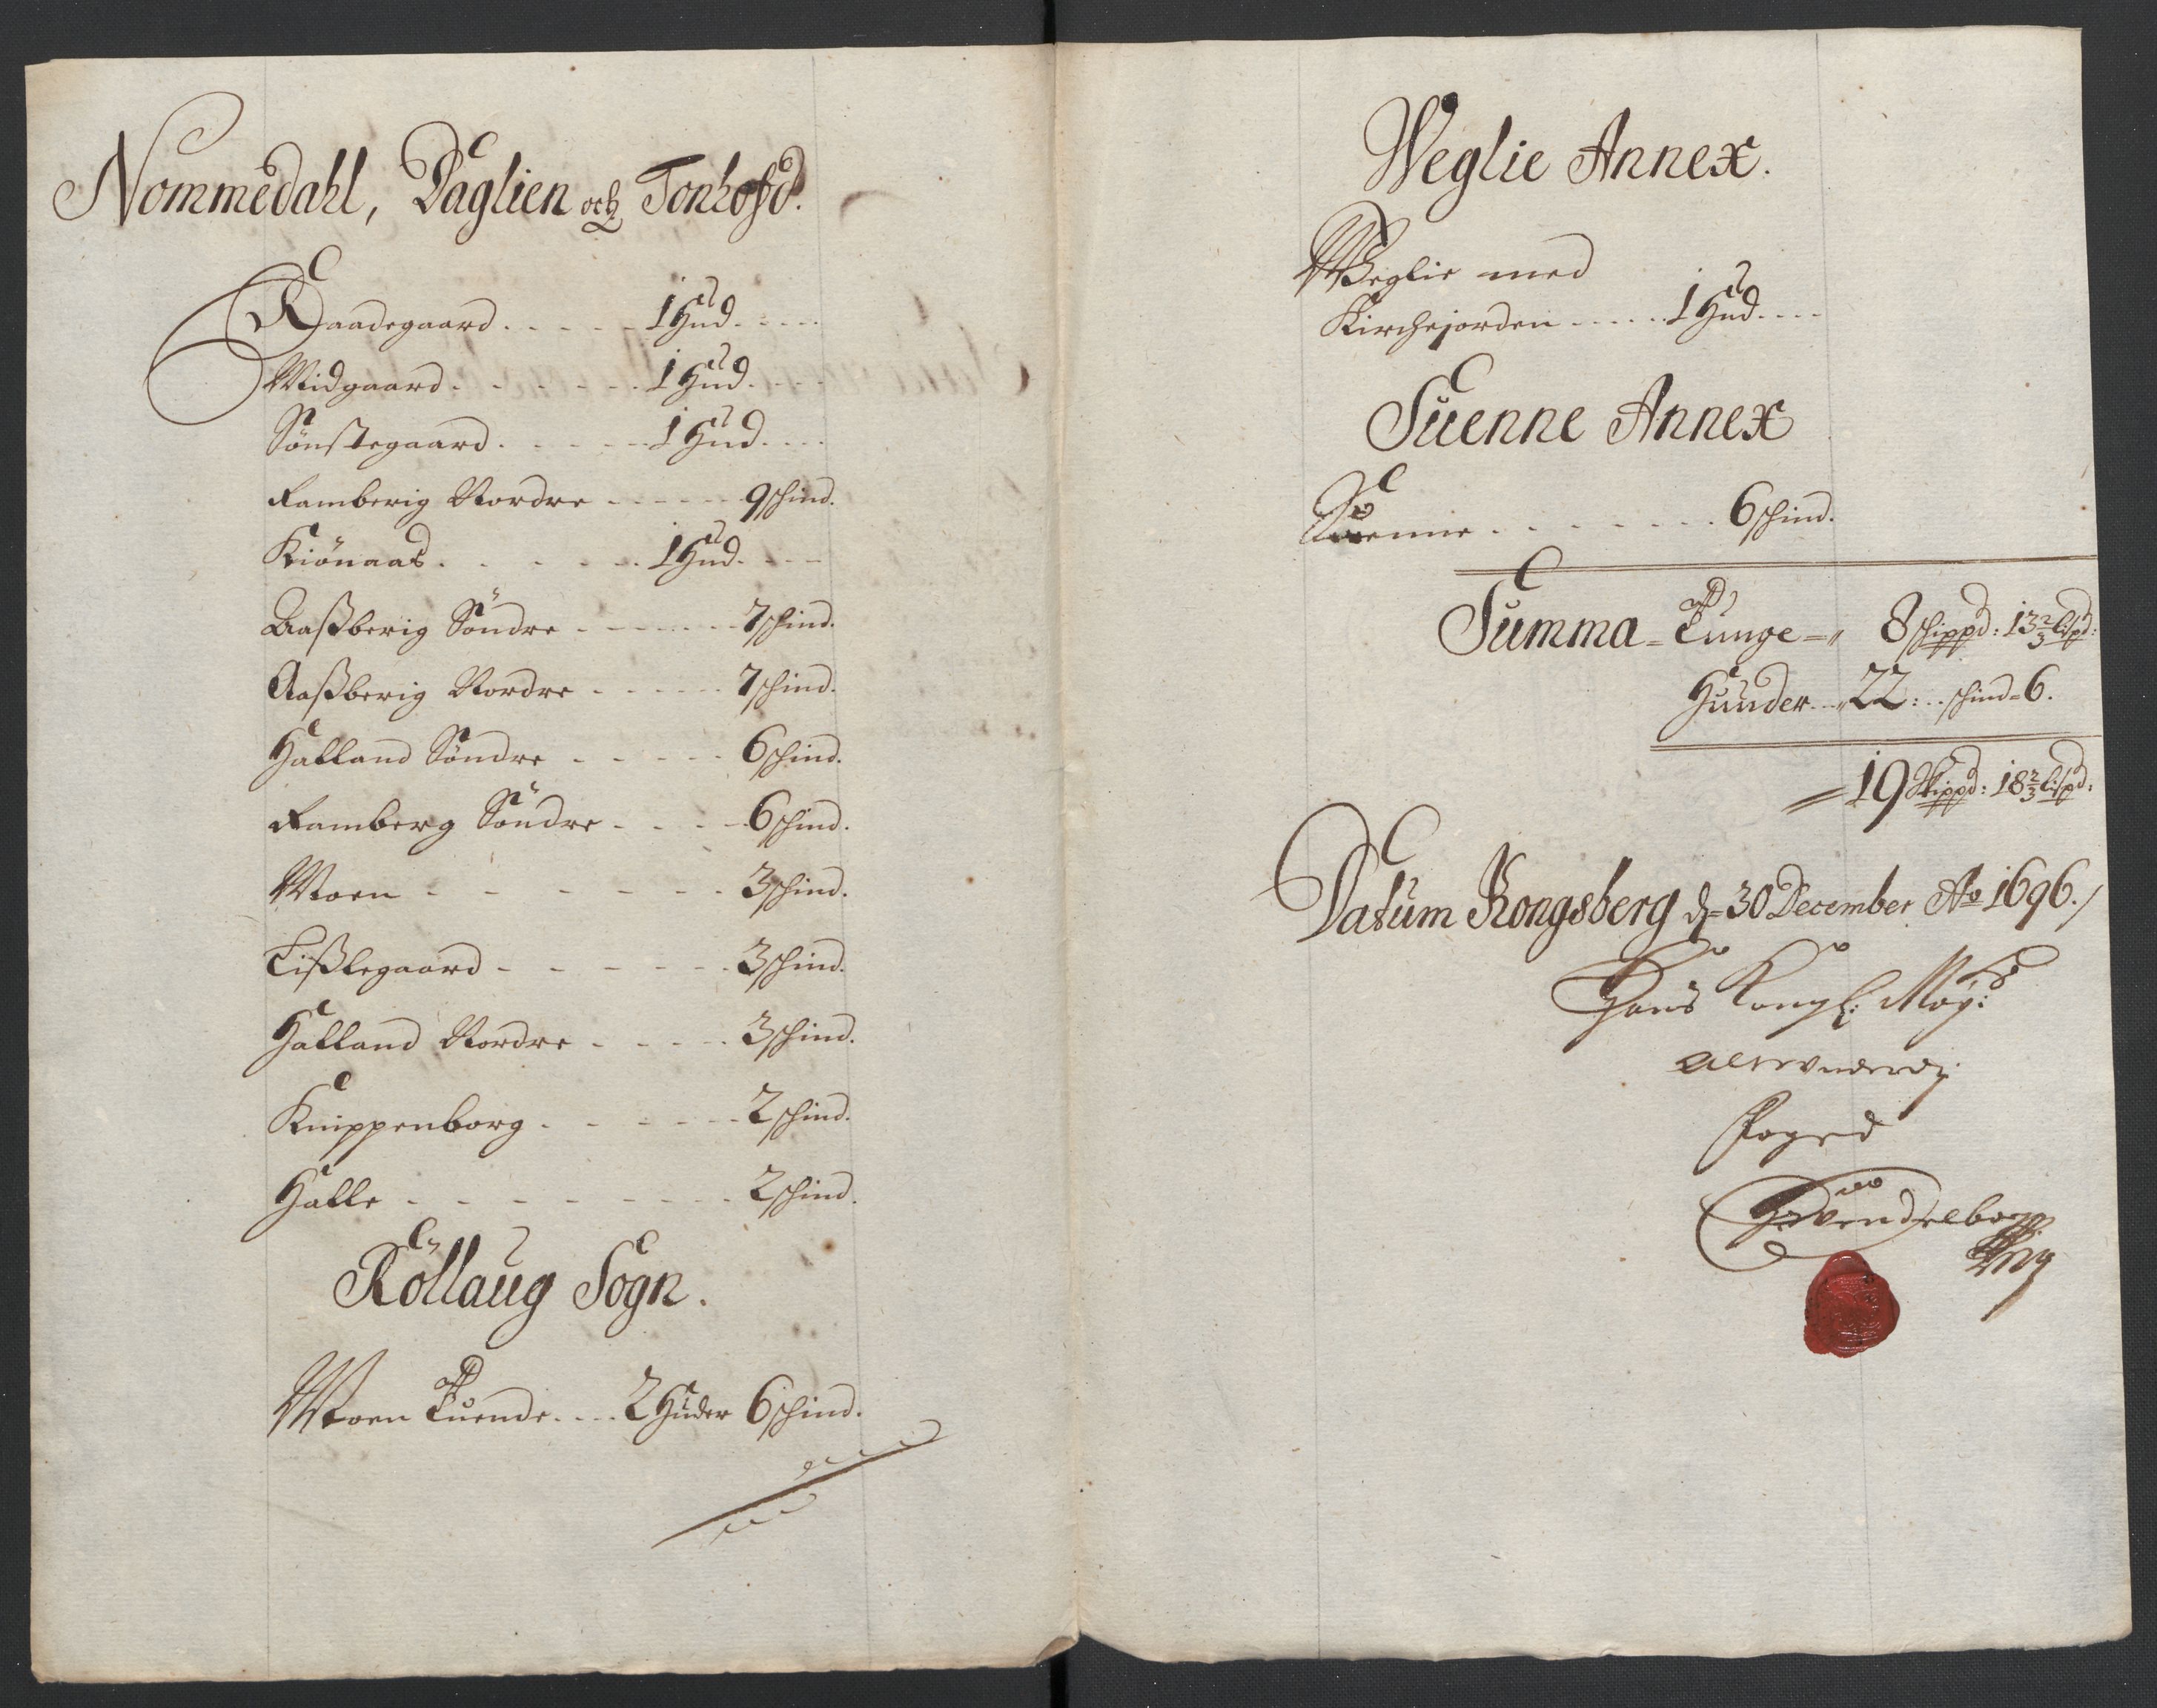 Nommedahl, Daglien och Tonhofd.
Raadegaard . . . . . 1 Hud . . . .
Midgaard . . . . . . 1 Hud . . . .
Sønstegaard . . . . . 1 Hud . . . .
Ramberig Nordre . . . . . . 9 schind.
Kiönaas . . . . . . 1 Hud . . . .
Aaßberig Söndre . . . . . . 7 schind.
Aaßberig Nordre . . . . . . 7 schind.
Halland Söndre . . . . . 6 schind.
Ramberg Söndre . . . . 6 schind.
Moen . . . . . . . 3 schind.
Tißlegaard . . . . . . 3 schind.
Halland Nordre . . . . . 3 schind.
Knippenborg . . . . . . 2 schind.
Halle . . . . . . . . 2 schind.
Röllaug Sogn.
Moen Tuende . . . . 2 Huder 6 schind.
Weglie Annex.
Weglie med
Kirchejorden . . . . . 1 Hud . . . .
Suenne Annex
Suenne . . . . . . . 6 schind.
Summa = Tunge = " 8 schippd: 13 2/3 Lispd:
Huuder . . " 22 : . . schind = 6.
= 19 Skippd: 18 2/3 Lispd:
Datum Kongsberg d = 30 December Ao 1696./
Hans Kongl: May:ts
Foged